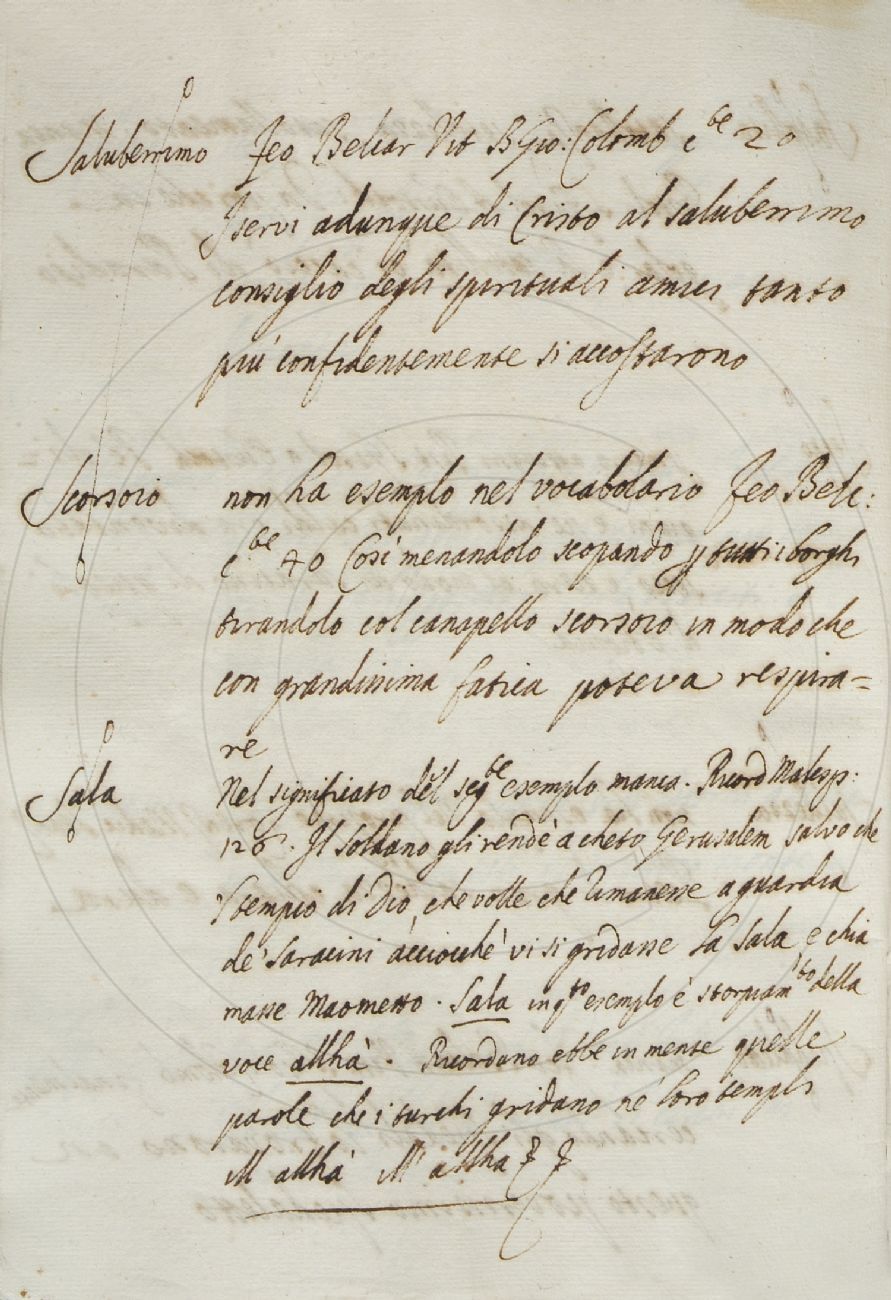 Saluberrimo Feo Belcar Vit B Gio: Colomb c^be 20
I servi adunque di Cristo al saluberrimo
consiglio degli spirituali amici tanto
più confidentemente si accostarono
Scorsoio non ha esempio nel vocabolario Feo Belc:
c^be 40 Così menandolo scopando p tutti i borghi
tirandolo col canapello scorsoio in modo che
con grandissima fatica poteva respira=
re
Sala Nel significato del seg^te esempio manca. Ricord Malesp:
126. Il Soldano gli rendè a cheto Gerusalem salvo che
'l tempio di Dio, che volle che rimanesse a guardia
de' Saracini acciocchè vi si gridasse la Sala, e chia
masse Maometto. Sala in q^to esempio è storpiam^to della
voce allhà. Ricordano ebbe in mente quelle
parole che i turchi gridano ne' loro templi
allhà allha